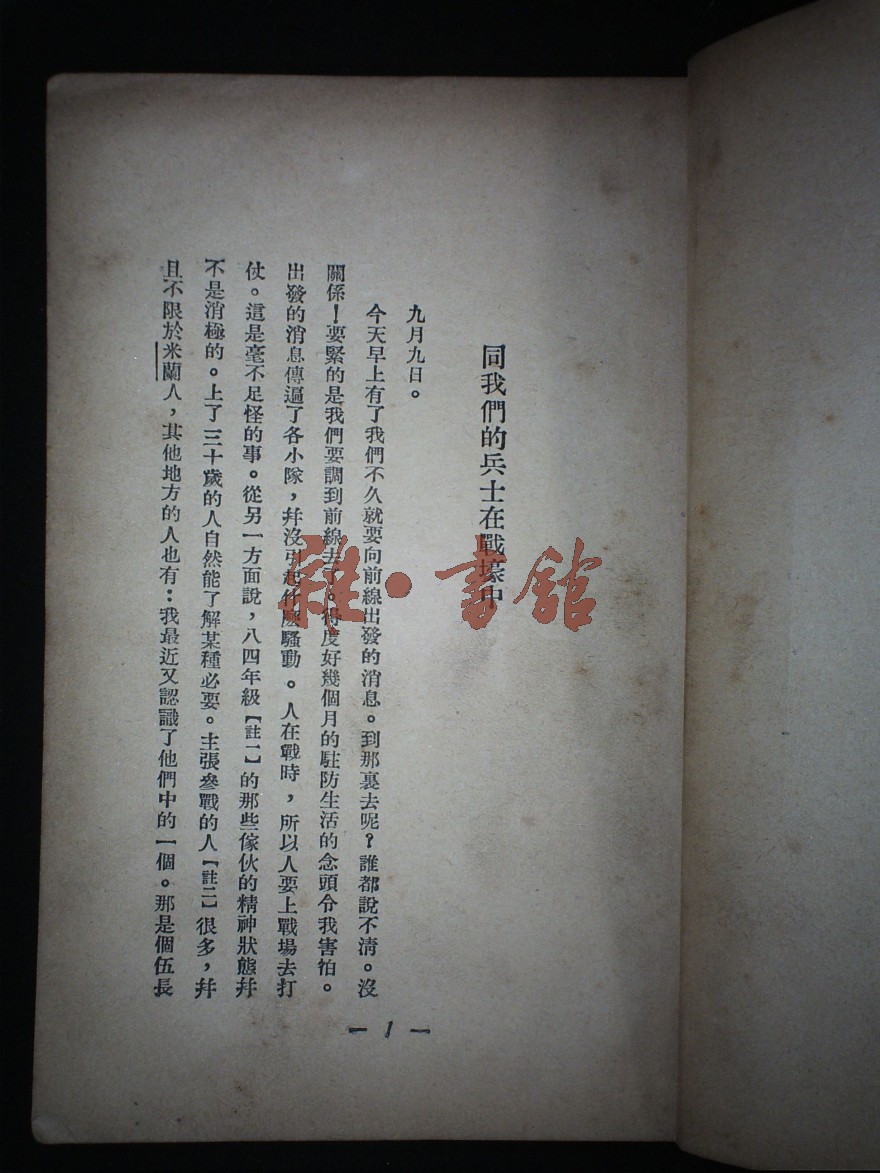 同我們的兵士在戰壕中
九月九日。
今天早上有了我們不久就要向前線出發的消息。到那裏去呢？誰都說不淸。沒
關係！要緊的是我們要調到前線去了。得度好幾個月的駐防生活的念頭令我害怕。
出發的消息傳遍了各小隊，幷沒引起什麽騷動。人在戰時，所以人要上戰場去打
仗。這是毫不足怪的事。從另一方面說，八四年級【註一】的那些傢伙的精神狀態幷
不是消極的。上了三十歲的人自然能了解某種必要。主張參戰的人【註二】很多，幷
且不限於米蘭人，其他地方的人也有：我最近又認識了他們中的一個。那是個伍長
— 1 —
雜·書館